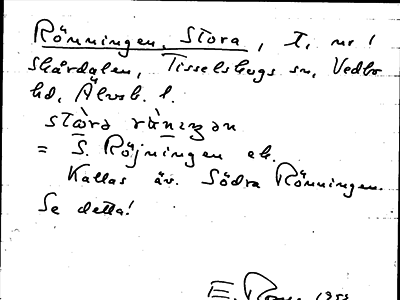 Rönningen, Stora, T. nr 1
Skårdalen, Tisselskogs sn, Vedbo
hd, Älvsb. l.
stὼra rὰniŋən
= S. Röjningen ek.
Kallas äv. Södra Rönningen.
Se detta!
E. 1953